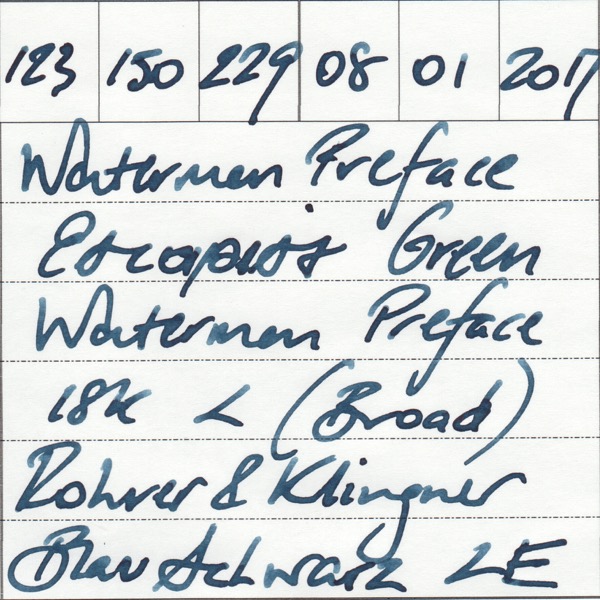 123 150 229 08 01 2017
Waterman Preface
Escapist Green
Waterman Preface
18K L (Broad)
Rohrer & Klingner
Blau Schwarz LE